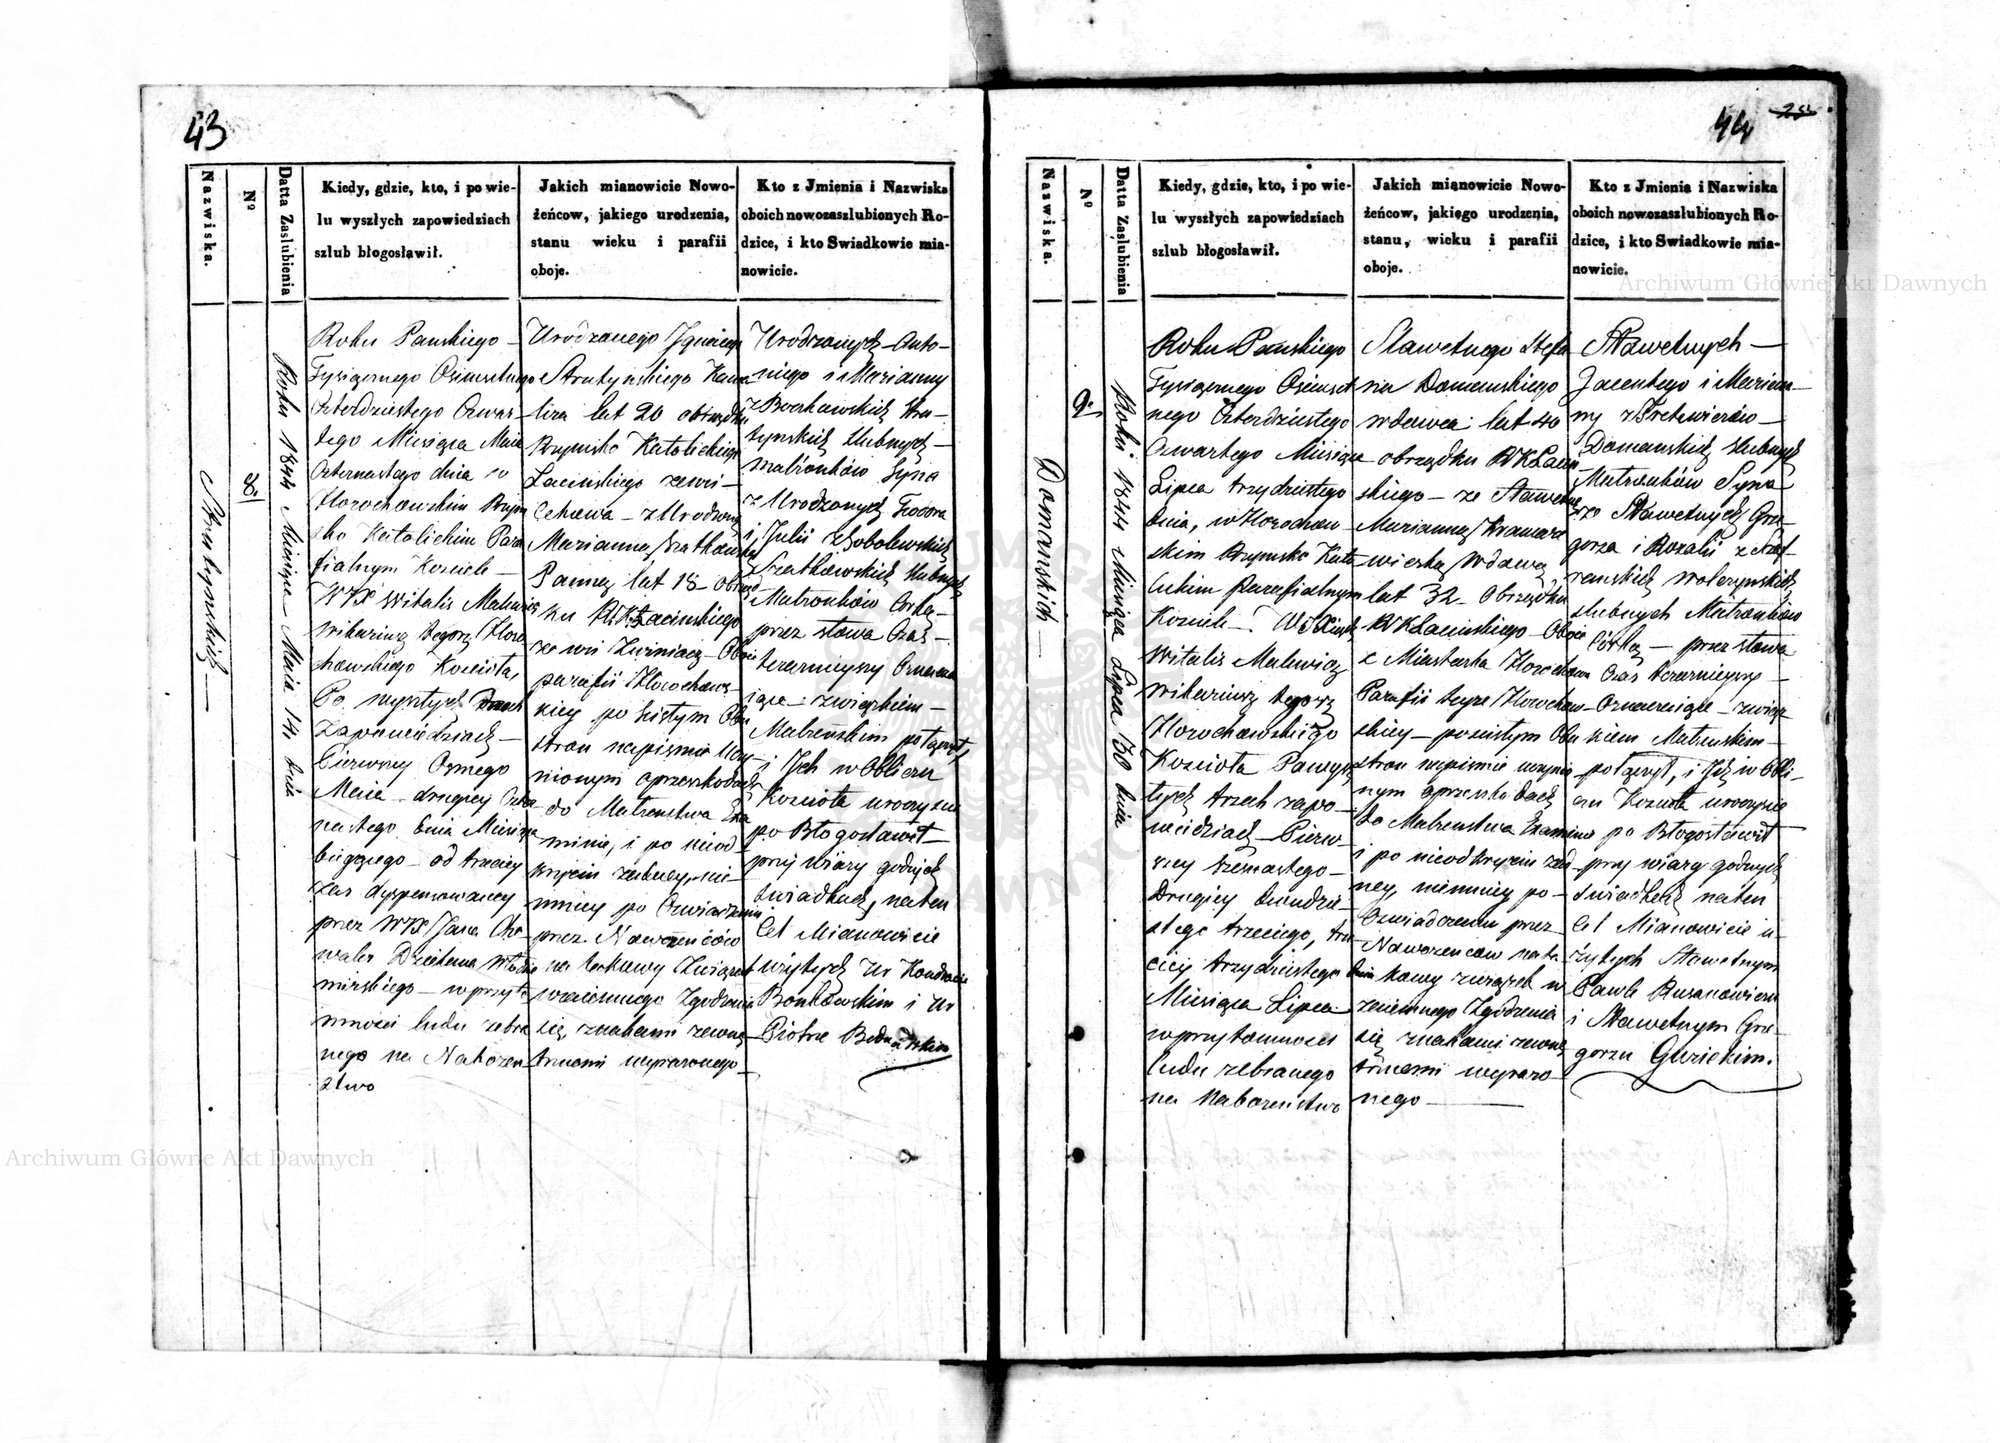 43
Nazwiska.
Nº
Datta Zaslubienia
Kiedy, gdzie, kto, i po wie-
lu wyszłych zapowiedziach
szlub błogosławił.
Jakich mianowicie Nowo-
żeńcow, jakiego urodzenia,
stanu wieku i parafii
oboje.
Kto z Jmienia i Nazwiska
oboich nowozaszlubionych Ro-
dzice, i kto Swiadkowie mia-
nowicie.
Strutynskich
8.
Roku 1844 Miesiąca Maia 14 dnia
Roku Panskiego
Tysiącznego Osimsetnego
Czterdziestego Czwar-
tego Miesiąca Maia
Czternastego dnia w
Horochowskim Rzym
sko Katolickim Para
fialnym Kosciele
WJX Witalis Malewicz
Wikariusz tegoż Horo
chowskiego Kościoła,
Po wyszłych
Zapowiedziach
Pierwszey Osmego
Maia drugiey
nastego dnia Miesiąca
bieżącego od trzeciey
zas dyspensowaney
przez WJX Jana
Dziekana Włodzi
mirskiego w przyto
mności ludu zebra
nego na Nabożen
stwo
Urodzonego Jgnacego
Strutynskiego Kawa
lira lat 20 obrządku
Rzymsko Katolickiego
Lacinskiego zewsi
Cehowa z Urodzoną
Marianną Szatkowską
Panną lat 18 Obrząd
ku R.K. Łacinskiego
ze wsi Zwiniacz Oboie
parafii Horochows-
kiey po scistym Obu
stron napismie Uczy
nionym oprzeszkodach
do Małżenstwa Exa
minie, i po nieod
kryciu żadney, nie-
mniey po Oswiadczeniu
przez Nowożeńców
na takowy Związek
wzaiemnego Zgodzenia
się znakami zewnę-
trznemi wyrażonego
Urodzonych Anto-
niego i Marianny
z Strutynskich Slubnych
małżonków Syna
z Urodzonych Teodora
i Julii z Sobolewskich
Szatkowskich slubnych
Małżonków Corką
przez słowa Czas
teraznieyszy Oznacza
iące związkiem
Małżeńskim połączył,
i Jch w Obliczu
Kościoła uroczyscie
po Błogosławił
przy wiary godnych
Swiadkach, na ten
Cel Mianowicie
Użytych Ur
i Ur
Piotrze
44
Nazwiska.
Nº
Datta Zaslubienia
Kiedy, gdzie, kto, i po wie-
lu wyszłych zapowiedziach
szlub błogosławił.
Jakich mianowicie Nowo-
żeńcow, jakiego urodzenia,
stanu, wieku i parafii
oboje.
Kto z Jmienia i Nazwiska
oboich nowozaszlubionych Ro-
dzice, i kto Swiadkowie mia-
nowicie.
Domanskich
9.
Roku 1844 Miesiąca Lipca 30 dnia
Roku Panskiego
Tysiącznego Osimset
nego Czterdziestego
Czwartego Miesiąca
Lipca trzydziestego
dnia, w Horochow-
skim Rzymsko Kato
lickim Parafialnym
Kosciele WJXiądz
Witalis Malewicz
Wikariusz tegoż
Horochowskiego
Kościoła Powysz
łych trzech zapo
wiedziach Pierw
szey szesnastego
Drugiey dwudzie
stego trzeciego, trze
ciey trzydziestego dnia
Miesiąca Lipca
w przytomności
ludu zebranego
na Nabożeństwo
Sławetnego Stefa
na Domanskiego
wdowca lat 40
obrządku RK Łacin
skiego ze Sławetną
Marianną
Wdową
lat 32 Obrządku
RK Łacinskiego Oboie
z Miasteczka Horochowa
Parafii teyże Horochow
skiey po scistym Obu
stron napismie uczynio
nym oprzeszkodach
do Małżenstwa Examinie
i po nieodkryciu żad
ney, niemniey po
Oswiadczeniu przez
Nowożencow na ta
kowy związek w
zaiemnego Zgodzenia
się znakami zewnę
trznemi wyrażo
nego
Sławetnych
Jacentego i Marian
ny
Domanskich slubnych
Małżonków Syna
ze Sławetnych Grze-
gorza i Rozalii
slubnych Małżonków
Córką przez słowa
Czas teraznieyszy
Oznaczaiące związ
kiem Małżenskim
połączył, i Jch w Obli-
czu Kościoła uroczyscie
po Błogosławił
przy wiary godnych
Swiadkach na ten
Cel Mianowicie u-
żytych Sławetnym
Pawle
i Sławetnym Grze
gorzu
Archiwum Główne Akt Dawnych
Archiwum Główne Akt Dawnych